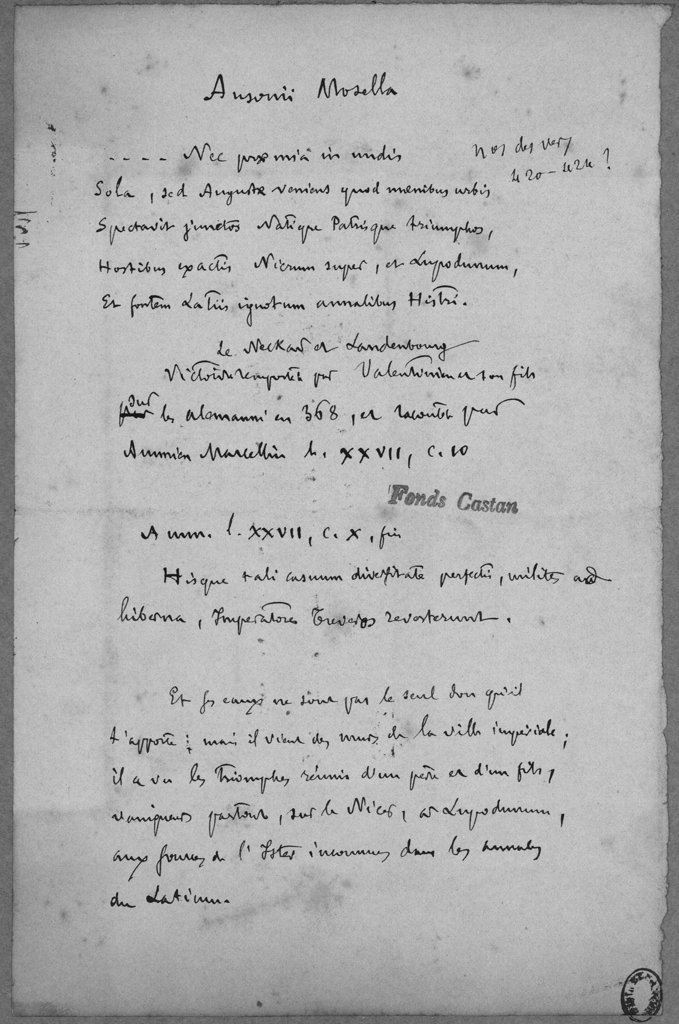 Ausonii Mosella
nos des vers
420-424 ?
---- Nec præmia in undis
Sola, sed Augustæ veniens quod mœnibus urbis
Spectavit junctos Natique Patrisque triumphos,
Hostibus exactis Nicrum super, et Lupodunum,
Et fontem Latiis ignotum annalibus Histri.
Le Neckar et Landenbourg
Victoire remportée par Valentinien et son fils
sur
les alemanni en 368, et racontée par
Ammien Marcellin l. XXVII, c. 10
Fonds Castan
Amm. l. XXVII, c. X, fin
Hisque tali casuum diversitate perfectis, milites ad
hiberna, Imperatores Treveros reverterunt.
Et ses eaux ne sont pas le seul don qu'il
t'apporte ; mais il vient des murs de la ville impériale ;
il a vu les triomphes réunis d'un père et d'un fils,
vainqueurs partout, sur le Nicer, à Lupodunum,
aux sources de l'Ister inconnues dans les annales
du Latium.